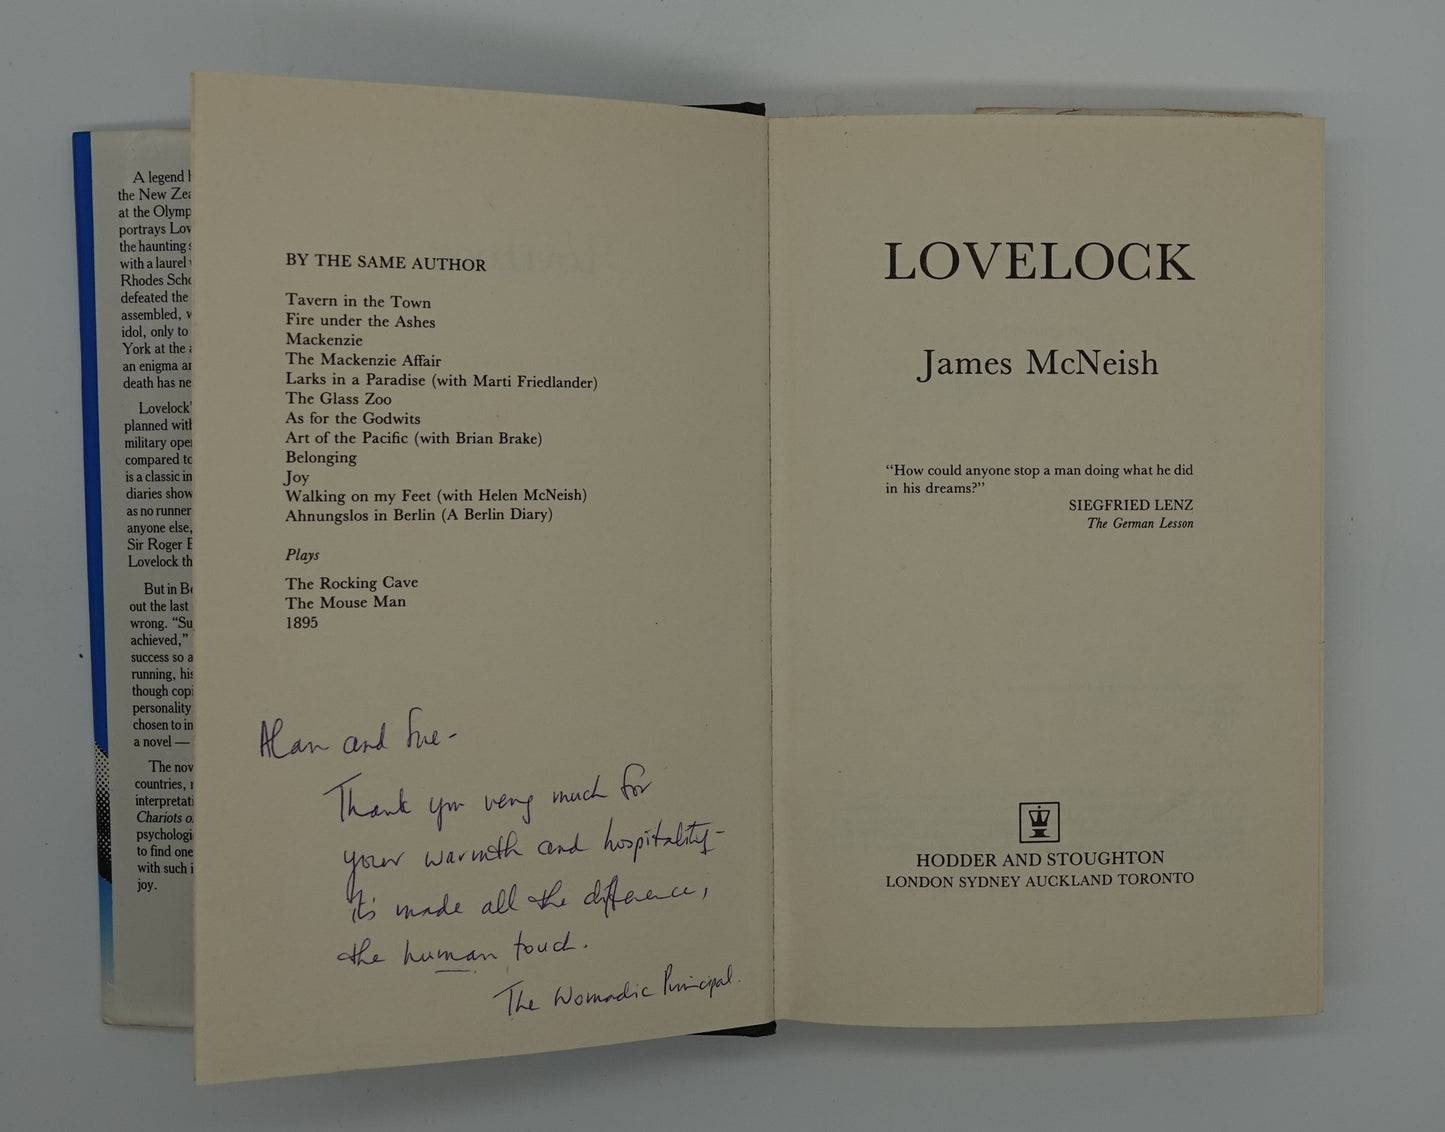 A legend h
the New Zea
at the Olymp
portrays Lov
the haunting s
with a laurel
Rhodes Scho
defeated the
assembled, w
idol, only to
York at the a
an enigma an
death has ne
Lovelock'
planned with
military oper
compared to
is a classic in
diaries show
as no runner
anyone else,
Sir Roger B
Lovelock th
But in Be
out the last
wrong. “Su
achieved,”
success so a
running, his
though copi
personality
chosen to in
a novel —
The nov
countries, r
interpretati
Chariots o
psychologi
to find one
with such i
joy.
BY THE SAME AUTHOR
Tavern in the Town
Fire under the Ashes
Mackenzie
The Mackenzie Affair
Larks in a Paradise (with Marti Friedlander)
The Glass Zoo
As for the Godwits
Art of the Pacific (with Brian Brake)
Belonging
Joy
Walking on my Feet (with Helen McNeish)
Ahnungslos in Berlin (A Berlin Diary)
Plays
The Rocking Cave
The Mouse Man
1895
Alan and Sue-
Thank you very much for
your warmth and hospitality-
It's made all the difference,
the human touch.
The Nomadic Principal.
LOVELOCK
James McNeish
“How could anyone stop a man doing what he did
in his dreams?”
SIEGFRIED LENZ
The German Lesson
HODDER AND STOUGHTON
LONDON SYDNEY AUCKLAND TORONTO